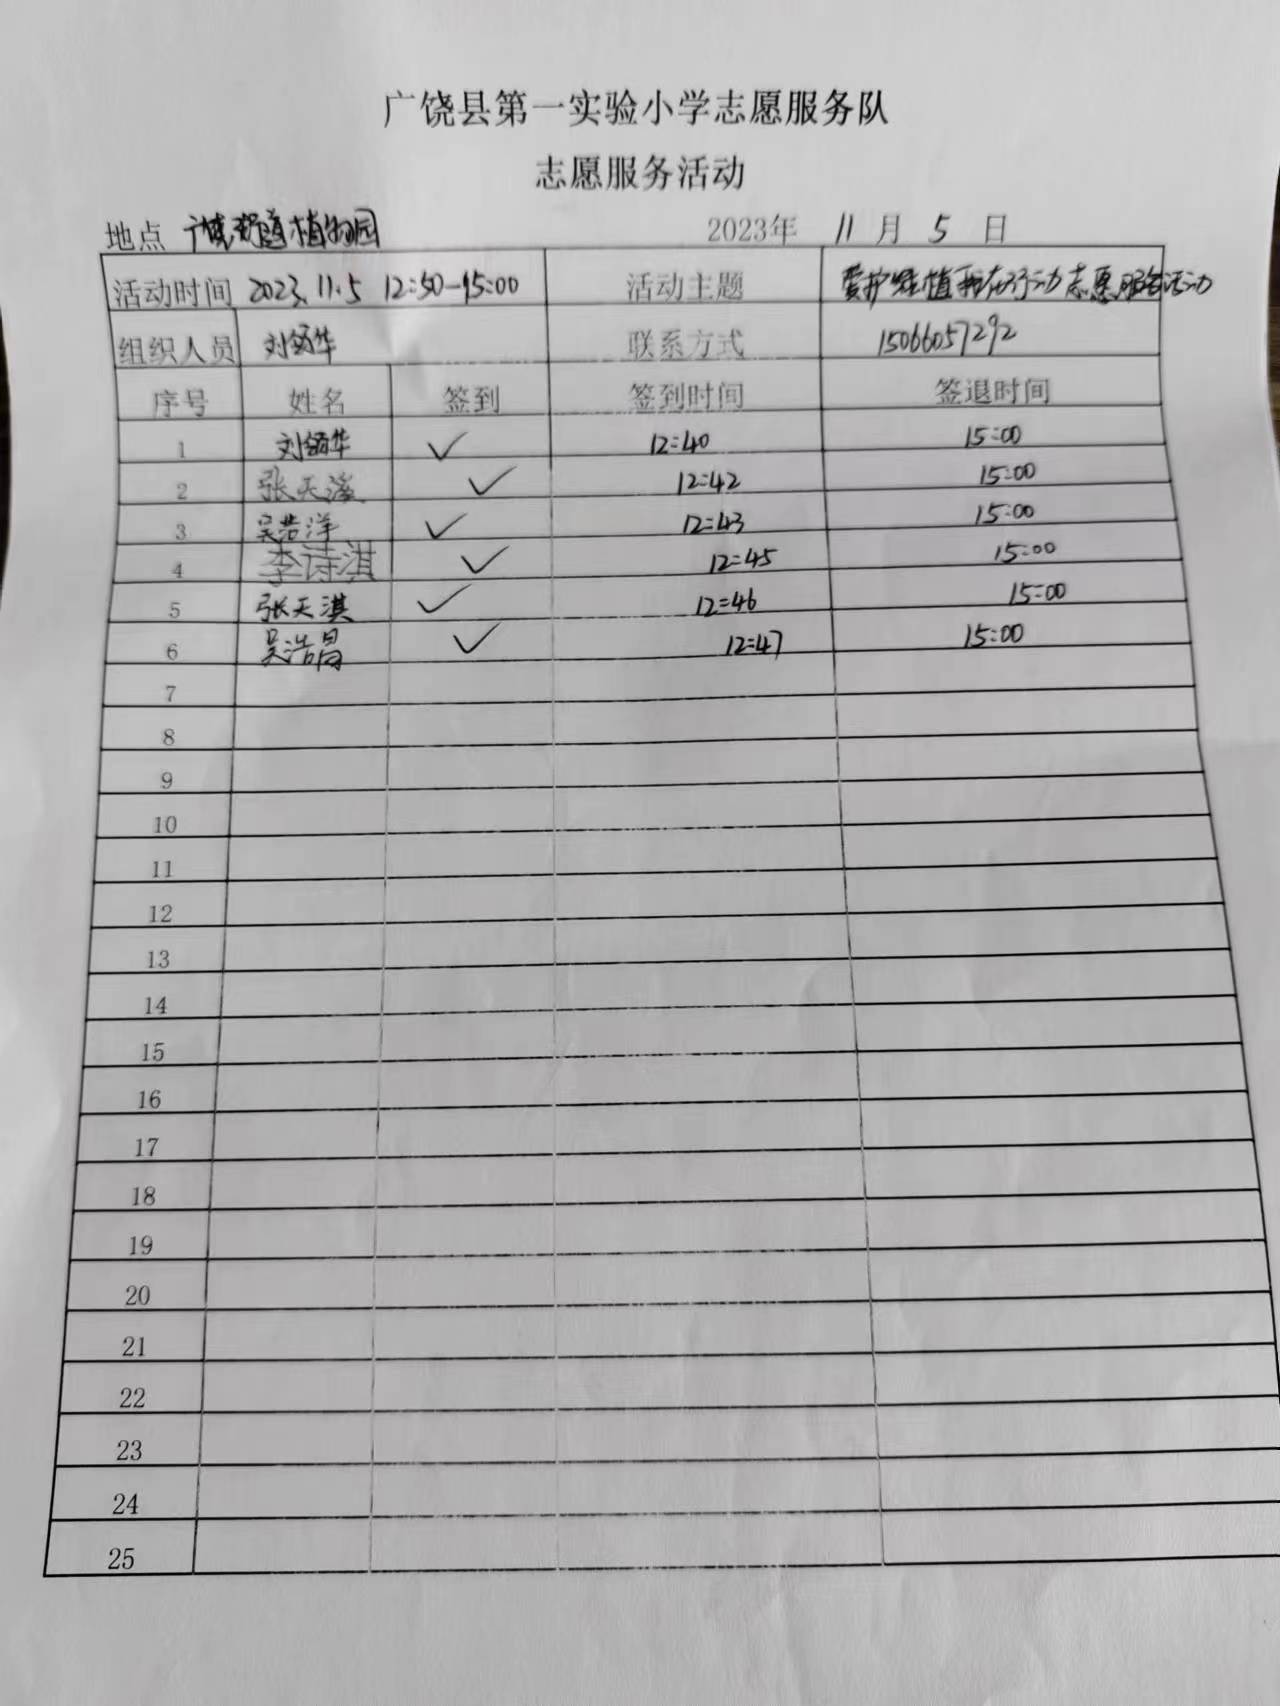 广饶县第一实验小学志愿服务队
志愿服务活动
地点 广饶 植物园 2023年 11 月 5 日
活动时间 2023.11.5 12:50-15:00 活动主题 爱护绿植 我在行动 志愿服务活动
组织人员 刘 华 联系方式 15066057292
序号 姓名 签到 签到时间 签退时间
1 刘 华 ✓ 12:40 15:00
2 张天溪 ✓ 12:42 15:00
3 吴浩洋 ✓ 12:43 15:00
4 李诗淇 ✓ 12:45 15:00
5 张天淇 ✓ 12:46 15:00
6 吴浩昌 ✓ 12:47 15:00
7
8
9
10
11
12
13
14
15
16
17
18
19
20
21
22
23
24
25